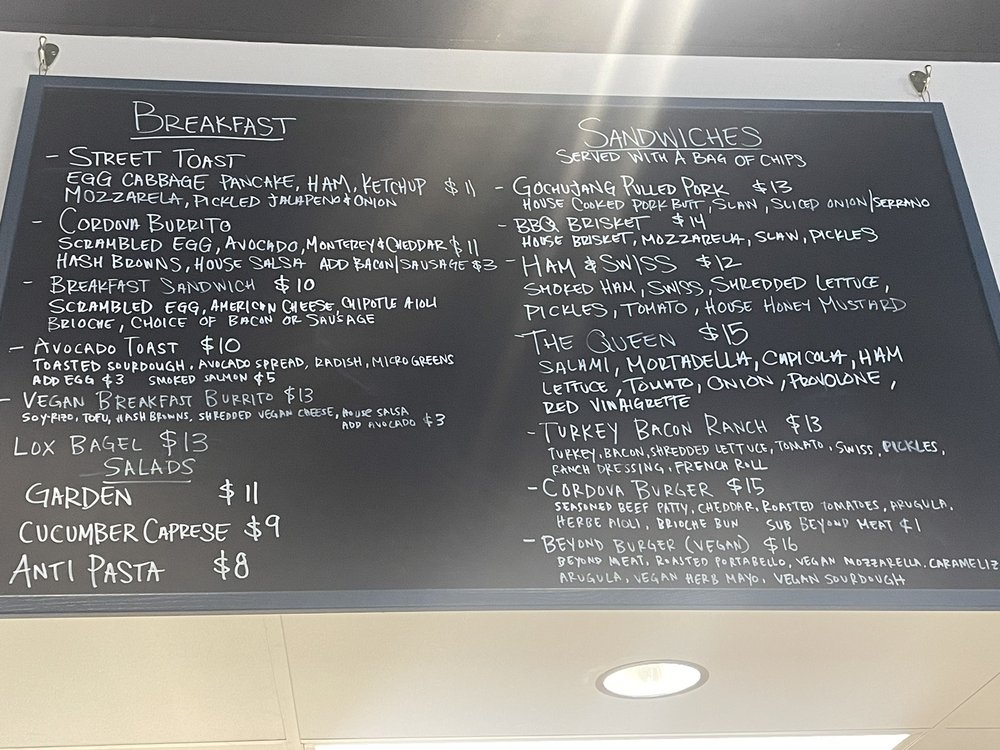 BREAKFAST
- STREET TOAST
EGG CABBAGE PANCAKE, HAM, KETCHUP $11
MOZZARELA, PICKLED JALAPENO & ONION
- CORDOVA BURRITO
SCRAMBLED EGG, AVOCADO, MONTEREY & CHEDDAR $11
HASH BROWNS, HOUSE SALSA ADD BACON/SAUSAGE $3
- BREAKFAST SANDWICH $10
SCRAMBLED EGG, AMERICAN CHEESE, CHIPOTLE AIOLI
BRIOCHE, CHOICE OF BACON OR SAUSAGE
- AVOCADO TOAST $10
TOASTED SOURDOUGH, AVOCADO SPREAD, RADISH, MICRO GREENS
ADD EGG $3 SMOKED SALMON $5
- VEGAN BREAKFAST BURRITO $13
SOY-RIZO, TOFU, HASH BROWNS, SHREDDED VEGAN CHEESE, HOUSE SALSA
ADD AVOCADO $3
LOX BAGEL $13
SALADS
GARDEN $11
CUCUMBER CAPRESE $9
ANTI PASTA $8
SANDWICHES
SERVED WITH A BAG OF CHIPS
- GOCHUJANG PULLED PORK $13
HOUSE COOKED PORK BUTT, SLAW, SLICED ONION/SERRANO
- BBQ BRISKET $14
HOUSE BRISKET, MOZZARELA, SLAW, PICKLES
- HAM & SWISS $12
SMOKED HAM, SWISS, SHREDDED LETTUCE,
PICKLES, TOMATO, HOUSE HONEY MUSTARD
- THE QUEEN $15
SALAMI, MORTADELLA, CAPICOLA, HAM
LETTUCE, TOMATO, ONION, PROVOLONE,
RED VINAIGRETTE
- TURKEY BACON RANCH $13
TURKEY, BACON, SHREDDED LETTUCE, TOMATO, SWISS, PICKLES,
RANCH DRESSING, FRENCH ROLL
- CORDOVA BURGER $15
SEASONED BEEF PATTY, CHEDDAR, ROASTED TOMATOES, ARUGULA,
HERBE AIOLI, BRIOCHE BUN SUB BEYOND MEAT $1
- BEYOND BURGER (VEGAN) $16
BEYOND MEAT, ROASTED PORTABELLO, VEGAN MOZZARELLA, CARAMELIZ
ARUGULA, VEGAN HERB MAYO, VEGAN SOURDOUGH